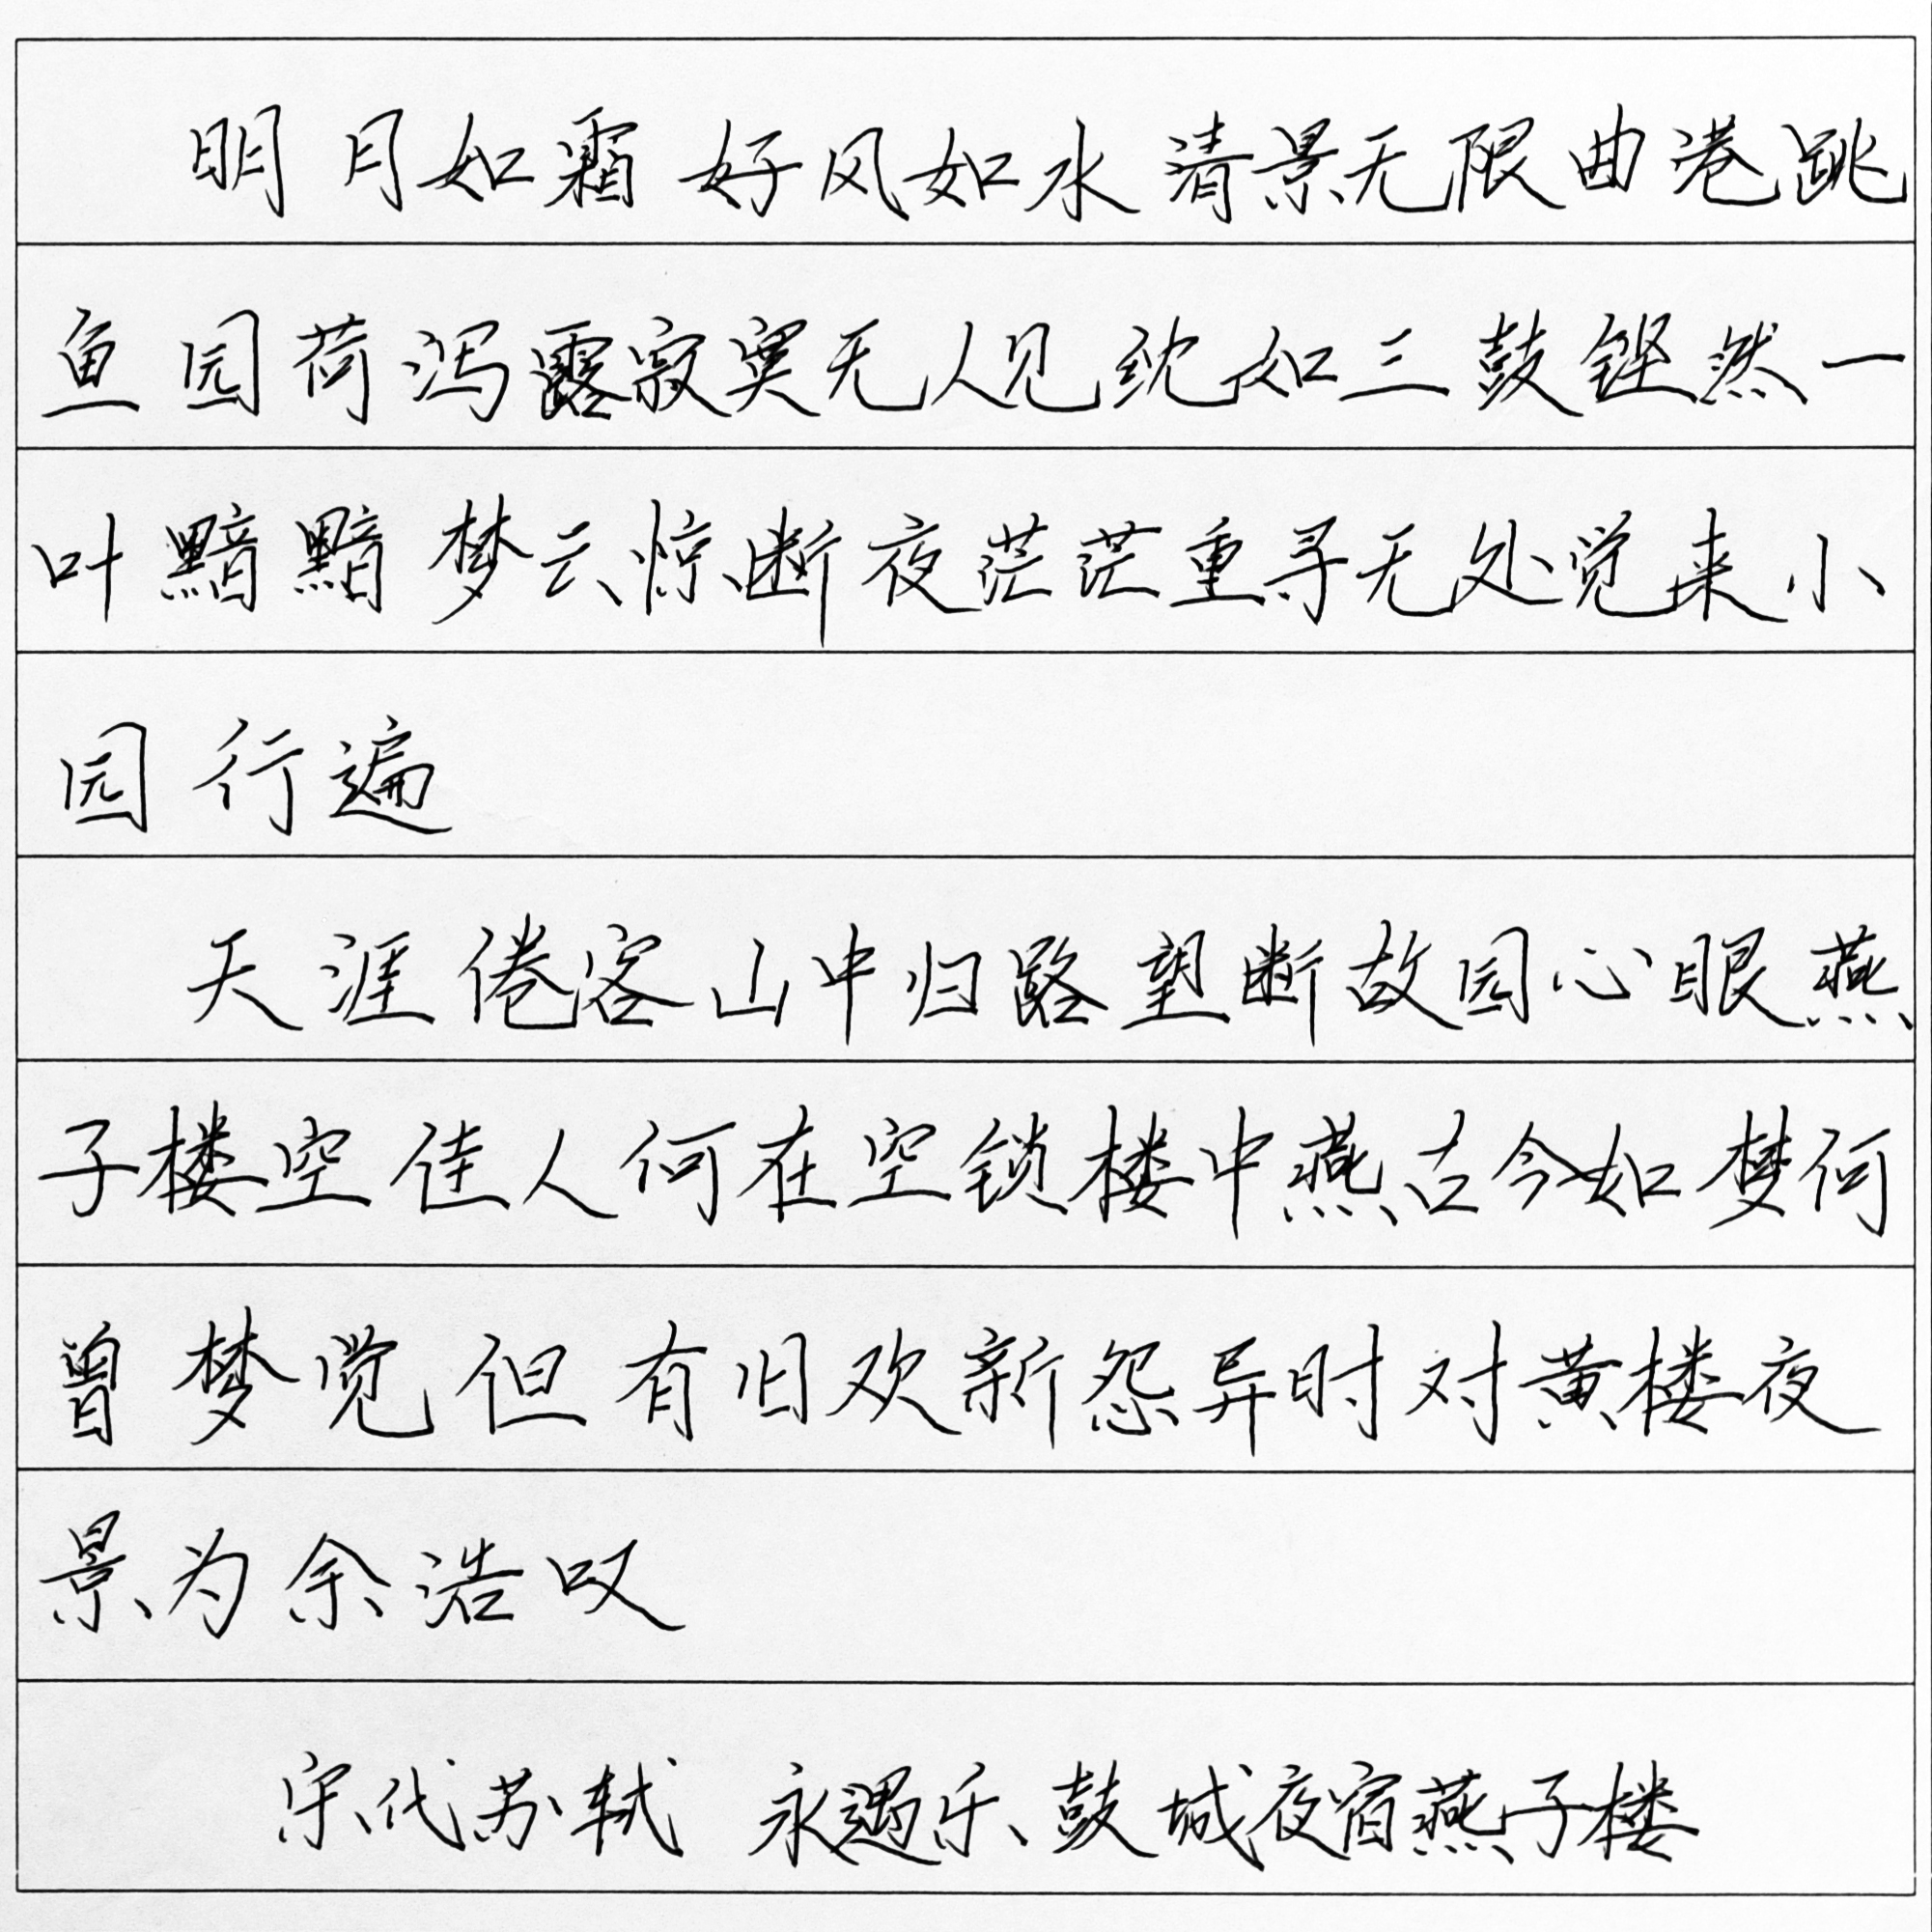 明月如霜好风如水清景无限曲港跳
鱼园荷泻露寂寞无人见紞如三鼓铿然一
叶黯黯梦云惊断夜茫茫重寻无处觉来小
园行遍
天涯倦客山中归路望断故园心眼燕
子楼空佳人何在空锁楼中燕古今如梦何
曾梦觉但有旧欢新怨异时对黄楼夜
景为余浩叹
宋代苏轼 永遇乐鼓城夜宿燕子楼